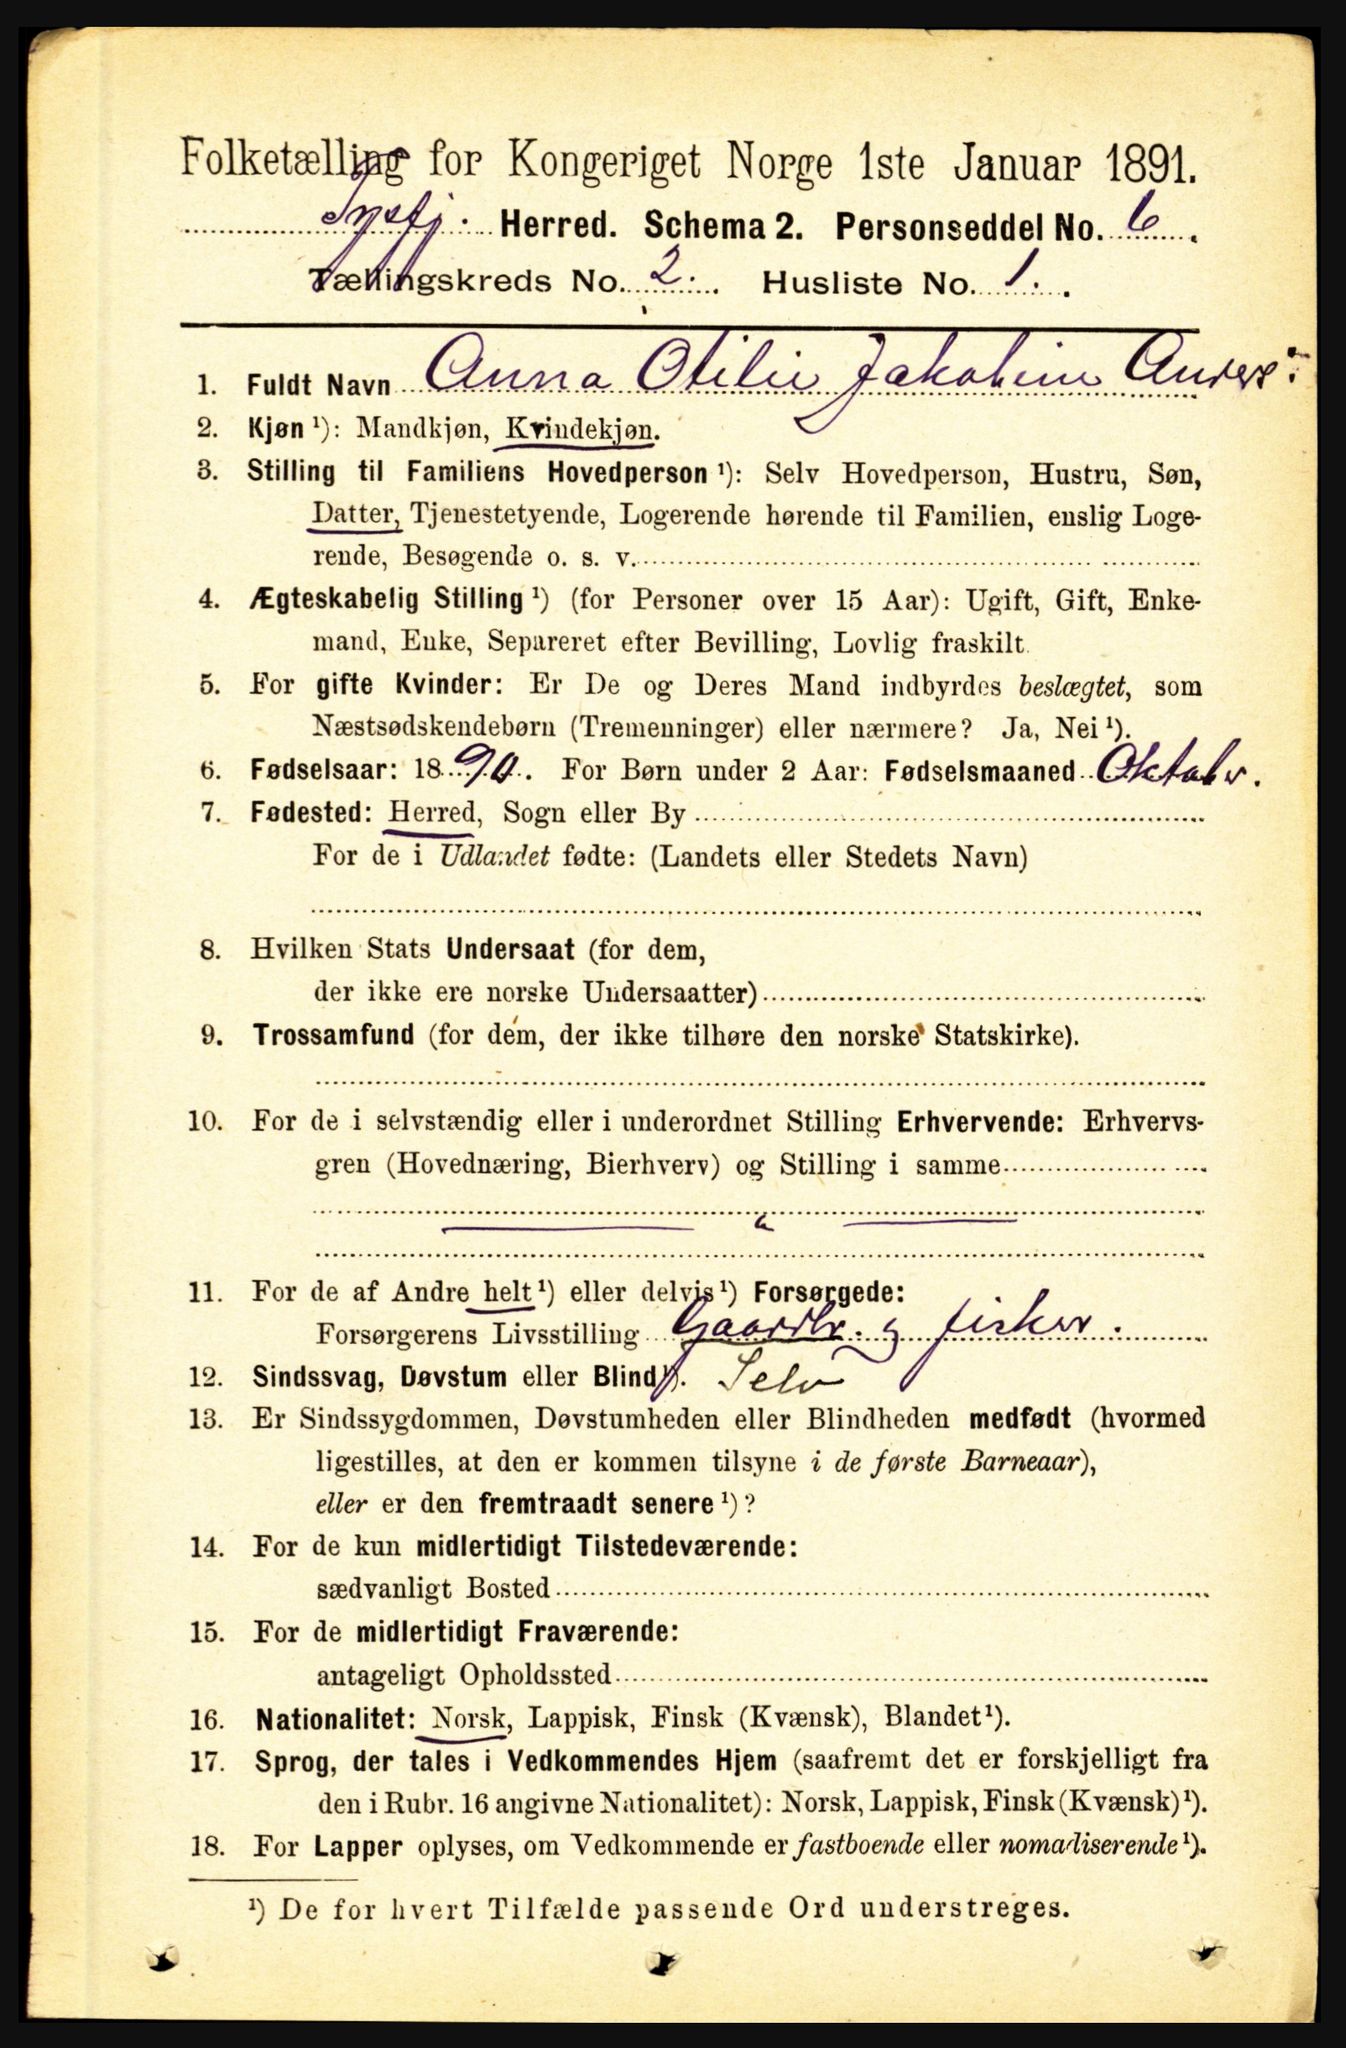 Folketælling for Kongeriget Norge 1ste Januar 1891.
Tysfj. Herred. Schema 2. Personseddel No. 6.
Tællingskreds No. 2. Husliste No. 1.
1. Fuldt Navn Anna Otilie Jakobine Anders:
2. Kjøn ¹): Mandkjøn, Kvindekjøn.
3. Stilling til Familiens Hovedperson ¹): Selv Hovedperson, Hustru, Søn,
Datter, Tjenestetyende, Logerende hørende til Familien, enslig Loge-
rende, Besøgende o. s. v.
4. Ægteskabelig Stilling ¹) (for Personer over 15 Aar): Ugift, Gift, Enke-
mand, Enke, Separeret efter Bevilling, Lovlig fraskilt.
5. For gifte Kvinder: Er De og Deres Mand indbyrdes beslægtet, som
Næstsødskendebørn (Tremenninger) eller nærmere? Ja, Nei ¹).
6. Fødselsaar: 1890. For Børn under 2 Aar: Fødselsmaaned Oktober.
7. Fødested: Herred, Sogn eller By
For de i Udlandet fødte: (Landets eller Stedets Navn)
8. Hvilken Stats Undersaat (for dem,
der ikke ere norske Undersaatter)
9. Trossamfund (for dem, der ikke tilhøre den norske Statskirke).
10. For de i selvstændig eller i underordnet Stilling Erhvervende: Erhvervs-
gren (Hovednæring, Bierhverv) og Stilling i samme
11. For de af Andre helt ¹) eller delvis ¹) Forsørgede:
Forsørgerens Livsstilling Gaardbr. og fisker.
12. Sindssvag, Døvstum eller Blind ¹). Selv
13. Er Sindssygdommen, Døvstumheden eller Blindheden medfødt (hvormed
ligestilles, at den er kommen tilsyne i de første Barneaar),
eller er den fremtraadt senere ¹)?
14. For de kun midlertidigt Tilstedeværende:
sædvanligt Bosted
15. For de midlertidigt Fraværende:
antageligt Opholdssted
16. Nationalitet: Norsk, Lappisk, Finsk (Kvænsk), Blandet ¹).
17. Sprog, der tales i Vedkommendes Hjem (saafremt det er forskjelligt fra
den i Rubr. 16 angivne Nationalitet): Norsk, Lappisk, Finsk (Kvænsk) ¹).
18. For Lapper oplyses, om Vedkommende er fastboende eller nomadiserende ¹).
¹) De for hvert Tilfælde passende Ord understreges.